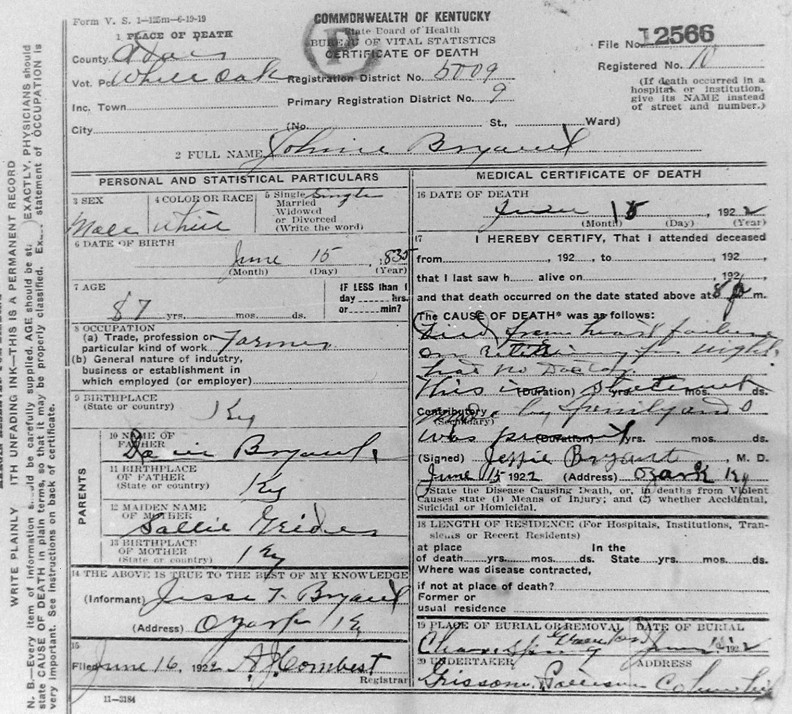 Form V. S. 1—125m—6-19-19
COMMONWEALTH OF KENTUCKY
State Board of Health
BUREAU OF VITAL STATISTICS
CERTIFICATE OF DEATH
File No. 12566
Registered No.
(If death occurred in a hospital or institution, give its NAME instead of street and number.)
1 PLACE OF DEATH
County Adair
Vot. Pct. White Oak Registration District No. 5009
Inc. Town Primary Registration District No. 9
City (No. St., Ward)
2 FULL NAME Johnie Bryant
PERSONAL AND STATISTICAL PARTICULARS
3 SEX Male
4 COLOR OR RACE White
5 Single Married Widowed or Divorced (Write the word) Single
6 DATE OF BIRTH June 15 1835
(Month) (Day) (Year)
7 AGE 87 yrs. mos. ds.
IF LESS than 1 day hrs. or min?
8 OCCUPATION
(a) Trade, profession or particular kind of work Farmer
(b) General nature of industry, business or establishment in which employed (or employer)
9 BIRTHPLACE (State or country) Ky
PARENTS
10 NAME OF FATHER Bryant
11 BIRTHPLACE OF FATHER (State or country) Ky
12 MAIDEN NAME OF MOTHER Sallie Grider
13 BIRTHPLACE OF MOTHER (State or country) Ky
14 THE ABOVE IS TRUE TO THE BEST OF MY KNOWLEDGE
(Informant) Jesse T. Bryant
(Address) Ozark Ky
15
Filed June 16, 1922 A J Combest
Registrar
11—3184
MEDICAL CERTIFICATE OF DEATH
16 DATE OF DEATH
June 15, 1922
(Month) (Day) (Year)
17 I HEREBY CERTIFY, That I attended deceased
from , 192 , to , 192
that I last saw h alive on , 192
and that death occurred on the date stated above at 8 p m.
The CAUSE OF DEATH* was as follows:
Died from heart failure
on retiring for night.
had no Doctor.
This is statement
(Duration) yrs. mos. ds.
Contributory by family and
(Secondary)
was present
(Duration) yrs. mos. ds.
(Signed) Jessie Bryant, M. D.
June 15 1922 (Address) Ozark Ky
*State the Disease Causing Death, or, in deaths from Violent Causes state (1) Means of Injury; and (2) whether Accidental, Suicidal or Homicidal.
18 LENGTH OF RESIDENCE (For Hospitals, Institutions, Transients or Recent Residents)
at place of death yrs. mos. ds. In the State yrs. mos. ds.
Where was disease contracted,
if not at place of death?
Former or
usual residence
19 PLACE OF BURIAL OR REMOVAL
DATE OF BURIAL
June 1922
20 UNDERTAKER
ADDRESS
Grissom
WRITE PLAINLY WITH UNFADING INK—THIS IS A PERMANENT RECORD
N. B.—Every item of information should be carefully supplied. AGE should be stated EXACTLY. PHYSICIANS should
state CAUSE OF DEATH in plain terms, so that it may be properly classified. statement of OCCUPATION is
very important. See instructions on back of certificate.